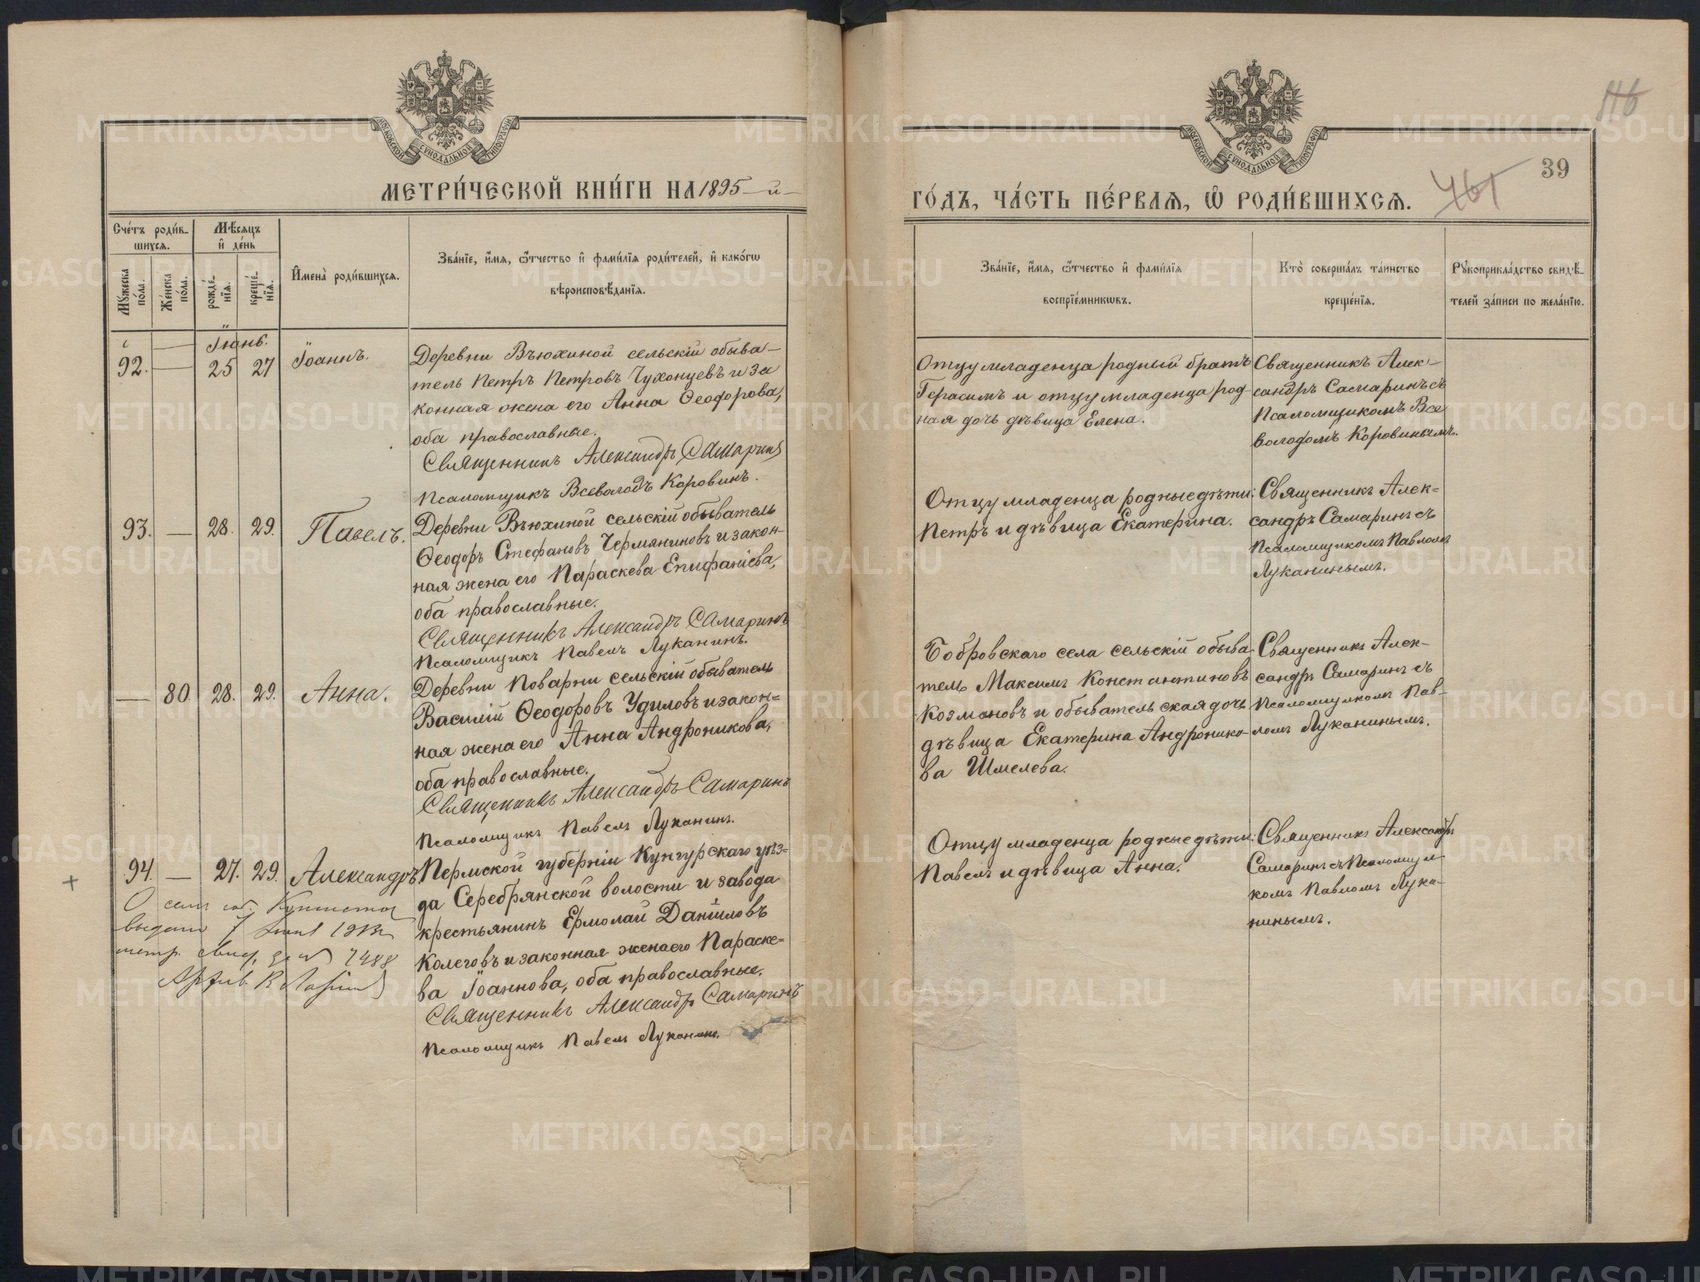 116
39
461
МОСКОВСКОЙ СѴНОДАЛЬНОЙ ТИПОГРАФІИ
МОСКОВСКОЙ СѴНОДАЛЬНОЙ ТИПОГРАФІИ
МЕТРИ́ЧЕСКОЙ КНИ́ГИ НА 1895-й-
ГО́ДЪ, ЧА́СТЬ ПЕ́РВАѦ, Ѡ҆ РОДИ́ВШИХСѦ.
Сче́тъ роди́в-
шихсѧ.
Мѣ́сѧцъ
и҆ де́нь
Мꙋ́жеска
по́ла.
Же́нска
по́ла.
рожде́-
нїѧ.
креще́-
нїѧ.
И҆мена̀ роди́вшихсѧ.
Зва́нїе, и҆́мѧ, ѻ҆́тчество и҆ фами́лїѧ роди́телей, и҆ како́гѡ
вѣроисповѣ́данїѧ.
Зва́нїе, и҆́мѧ, ѻ҆́тчество и҆ фами́лїѧ
воспрїе́мникѡвъ.
Кто̀ соверша́лъ та́инство
креще́нїѧ.
Рꙋкоприкла́дство свидѣ́-
телей за́писи по жела́нїю.
Іюнь.
92. — 25 27 Іоаннъ.
Деревни Вьюхиной сельскій обыва-
тель Петръ Петровъ Чухонцевъ и за
конная жена его Анна Ѳеодорова,
оба православные.
Священникъ Александръ Самаринъ
Псаломщикъ Всеволодъ Коровинъ.
Отцу младенца родный братъ
Герасимъ и отцу младенца род
ная дочь дѣвица Елена.
Священникъ Алек-
сандръ Самаринъ съ
Псаломщикомъ Все
володомъ Коровинымъ.
93. — 28. 29. Павелъ.
Деревни Вьюхиной сельскій обыватель
Ѳеодоръ Стефановъ Чермяниновъ и закон-
ная жена его Параскева Епифаніева,
оба православные.
Священникъ Александръ Самаринъ
Псаломщикъ Павелъ Луканинъ.
Отцу младенца родные дѣти:
Петръ и дѣвица Екатерина.
Священникъ Алек-
сандръ Самаринъ съ
Псаломщикомъ Павломъ
Луканинымъ.
— 80 28. 29. Анна.
Деревни Поварни сельскій обыватель
Василій Ѳеодоровъ Удиловъ и закон-
ная жена его Анна Андроникова,
оба православные.
Священникъ Александръ Самаринъ
Псаломщикъ Павелъ Луканинъ.
Бобровскаго села сельскій обыва
тель Максимъ Константиновъ
Козмановъ и обывательская дочь
дѣвица Екатерина Андронико-
ва Шмелева.
Священникъ Алек-
сандръ Самаринъ съ
Псаломщикомъ Пав-
ломъ Луканинымъ.
94. — 27. 29. Александръ
Пермской губерніи Кунгурскаго уѣз-
да Серебрянской волости и завода
крестьянинъ Ермолай Даніиловъ
Колеговъ и законная жена его Параске-
ва Іоаннова, оба православные.
Священникъ Александръ Самаринъ
Псаломщикъ Павелъ Луканинъ.
Отцу младенца родные дѣти:
Павелъ и дѣвица Анна.
Священникъ Александръ
Самаринъ съ Псаломщи
комъ Павломъ Лука-
нинымъ.
О семъ
выдано 7
метр. свид. за № 7488